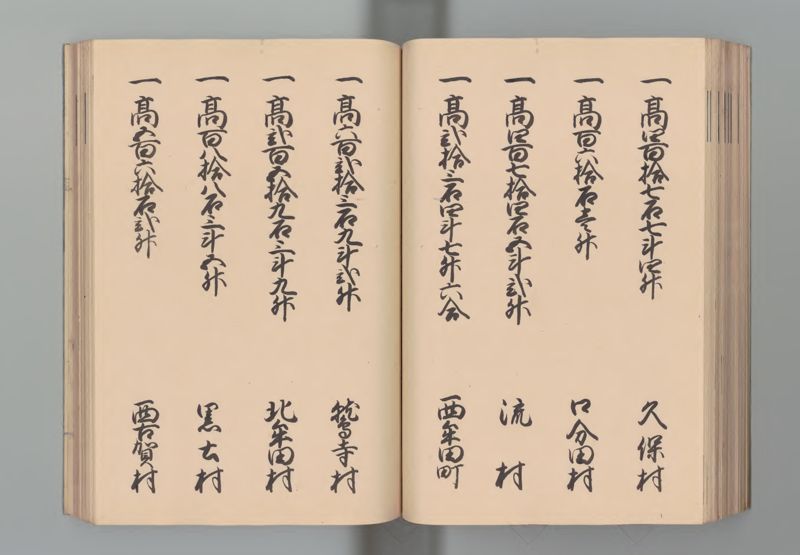 一高四百拾七石七斗四升 久保村
一高百六拾石壱升 口分田村
一高四百七拾四石五斗弐升 流村
一高弐拾三石四斗七升六合 西牟田町
一高六百弐拾三石九斗弐升 鷲寺村
一高弐百五拾九石三斗九升 北牟田村
一高百八拾八石三斗五升 黒土村
一高五百六拾石弐升 西古賀村